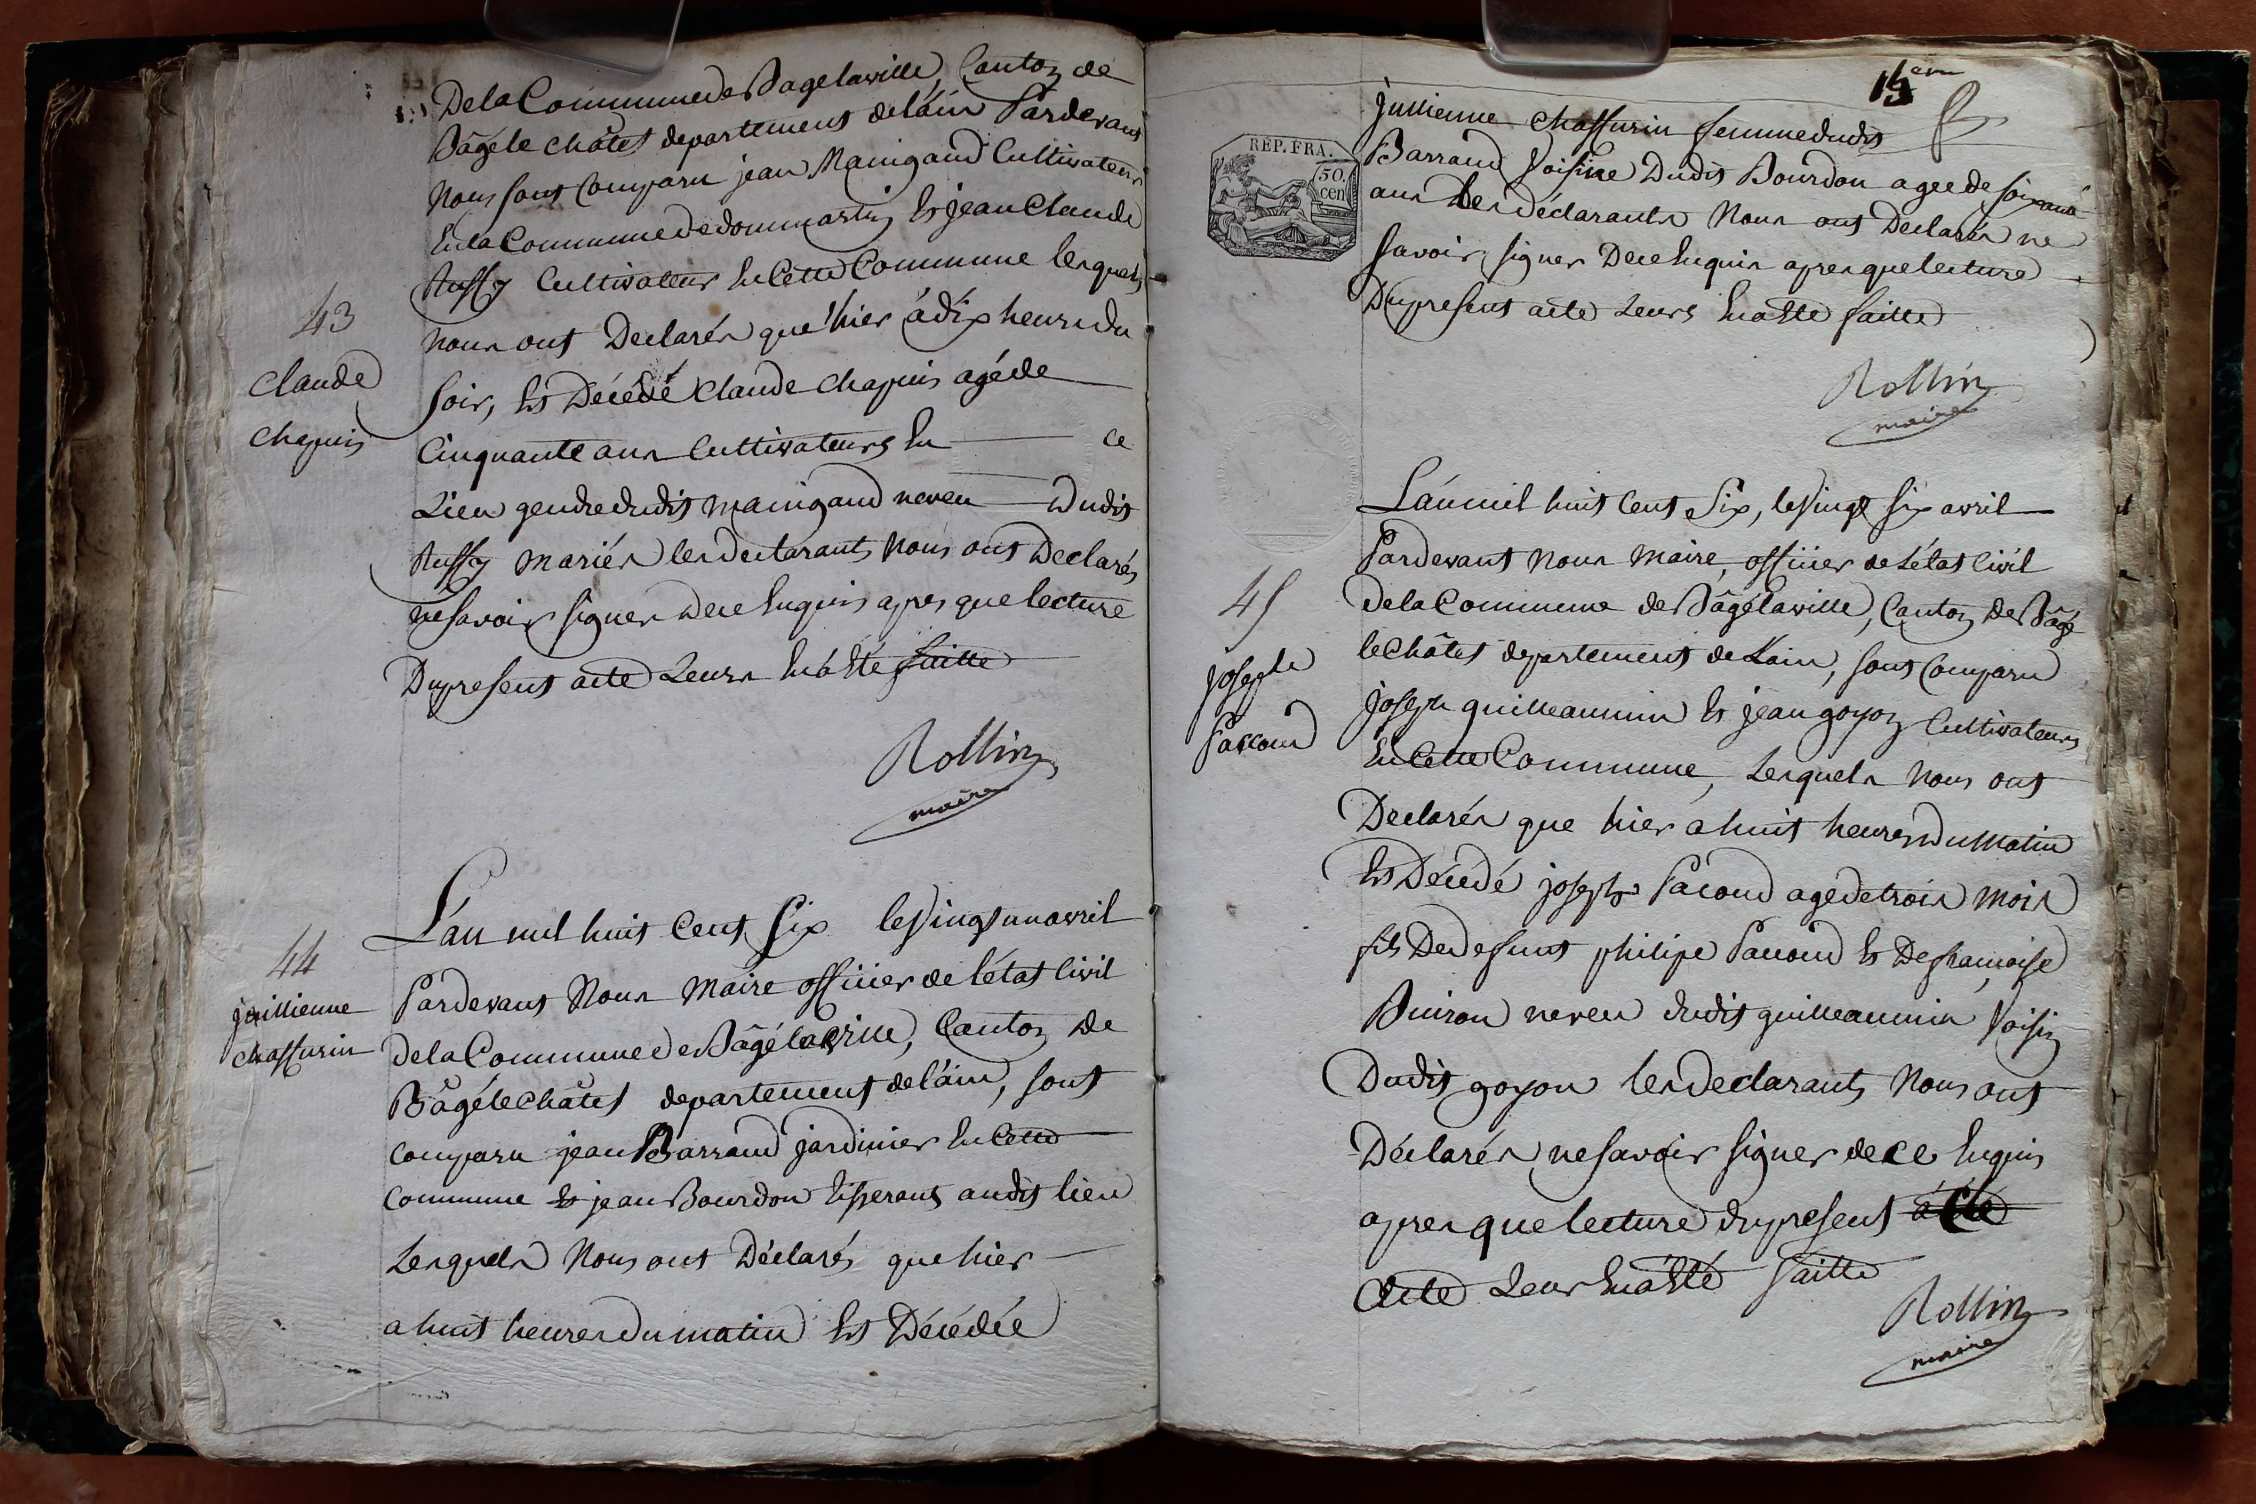 De la Commune de Bagelaville, Canton de
Bâgé le châtel departement de l'ain Pardevant
Nous sont Comparu jean Manigand Cultivateur
En la Commune de dommartin Et jean Claude
Ruffy Cultivateur En Cette Commune lesquels
nous ont Declarés que hier à dix heures du
43
Claude
Chapuis
soir, Est Décédé Claude Chapuis agé de
Cinquante ans Cultivateurs En ce
Lieu gendre dudit Manigand neveu Dudit
Ruffy mariés les declarants Nous ont Declarés
ne savoir signer de ce Enquis apres que lecture
Du present acte Leurs En a Eté faitte
Rollin
maire
44
jullienne
chassurin
L'an mil huit Cent Six le Vingt un avril
Pardevant Nous Maire officier de l'état Civil
de la Commune de Bâgélaville, Canton de
Bâgé le Châtel departement de l'ain, sont
comparu jean Barraud jardinier En Cette
Commune Et jean Bourdon tisserant audit lieu
Lesquels Nous ont Déclarés que hier
a huit heures du matin Est Décédée
15eme
REP. FRA.
50.
cen
jullienne chassurin femme dudit
Barraud Voisine Dudit Bourdon agée de soixante
ans Les déclarants Nous ont Declarés ne
savoir signer De ce Enquis apres que lecture
Du present acte Leurs En a Eté faitte
Rollin
maire
L'an mil huit Cent Six, le Vingt six avril
Pardevant Nous Maire, officier de L'état Civil
45
joseph
Paccoud
De la Commune de Bâgélaville, Canton de Bâgé
le Châtel departement de Lain, sont Comparu
joseph guilleaumin Et jean goyon Cultivateurs
En Cette Commune, Lesquels Nous ont
Declarés que hier a huit heures du Matin
Est Décédé joseph Pacoud agé de trois mois
fils De defunt philipe Pacoud Et De francoise
Buiron neveu dudit guilleaumin Voisin
Dudit goyon les declarants Nous ont
Déclarés ne savoir signer de ce Enquis
apres que lecture du present acte
acte Leur En a Eté faitte
Rollin
maire